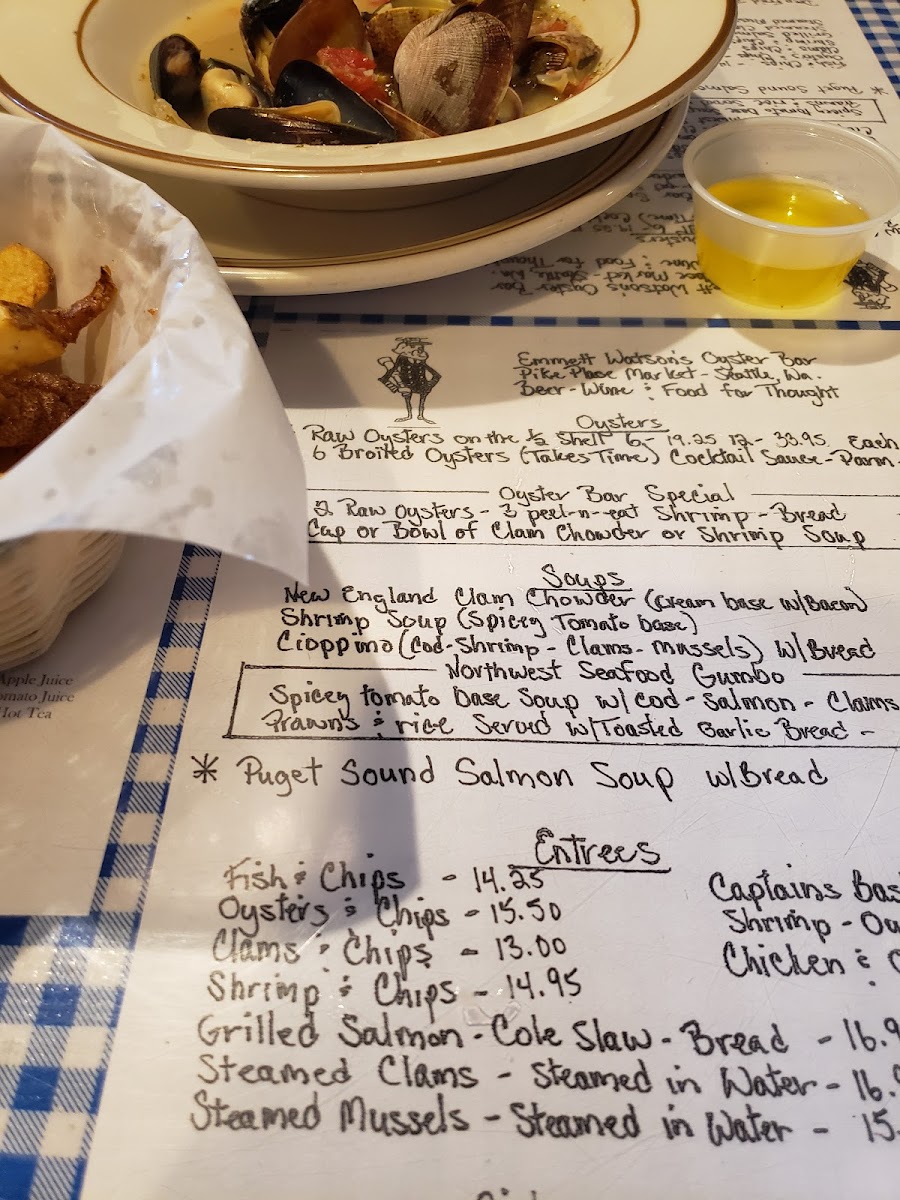 Emmett Watson's Oyster Bar
Pike Place Market - Seattle, Wa.
Beer - Wine & Food for Thought
Oysters
Raw Oysters on the ½ Shell 6- 19.25 12- 33.95 Each
6 Broiled Oysters (Takes Time) Cocktail Sauce - Parm
Oyster Bar Special
2 Raw Oysters - 3 peel-n-eat Shrimp - Bread
Cup or Bowl of Clam Chowder or Shrimp Soup
Soups
New England Clam Chowder (Cream base w/Bacon)
Shrimp Soup (Spicey Tomato base)
Cioppino (Cod - Shrimp - Clams - mussels) w/Bread
Northwest Seafood Gumbo
Spicey tomato base Soup w/ Cod - Salmon - Clams
Prawns & rice Served w/Toasted Garlic Bread -
* Puget Sound Salmon Soup w/Bread
Entrees
Fish & Chips - 14.25
Oysters & Chips - 15.50
Clams & Chips - 13.00
Shrimp & Chips - 14.95
Grilled Salmon - Cole Slaw - Bread - 16.9
Steamed Clams - Steamed in Water - 16.9
Steamed Mussels - Steamed in Water - 15.
Captains Bas
Shrimp -
Chicken &
Apple Juice
omato Juice
Hot Tea